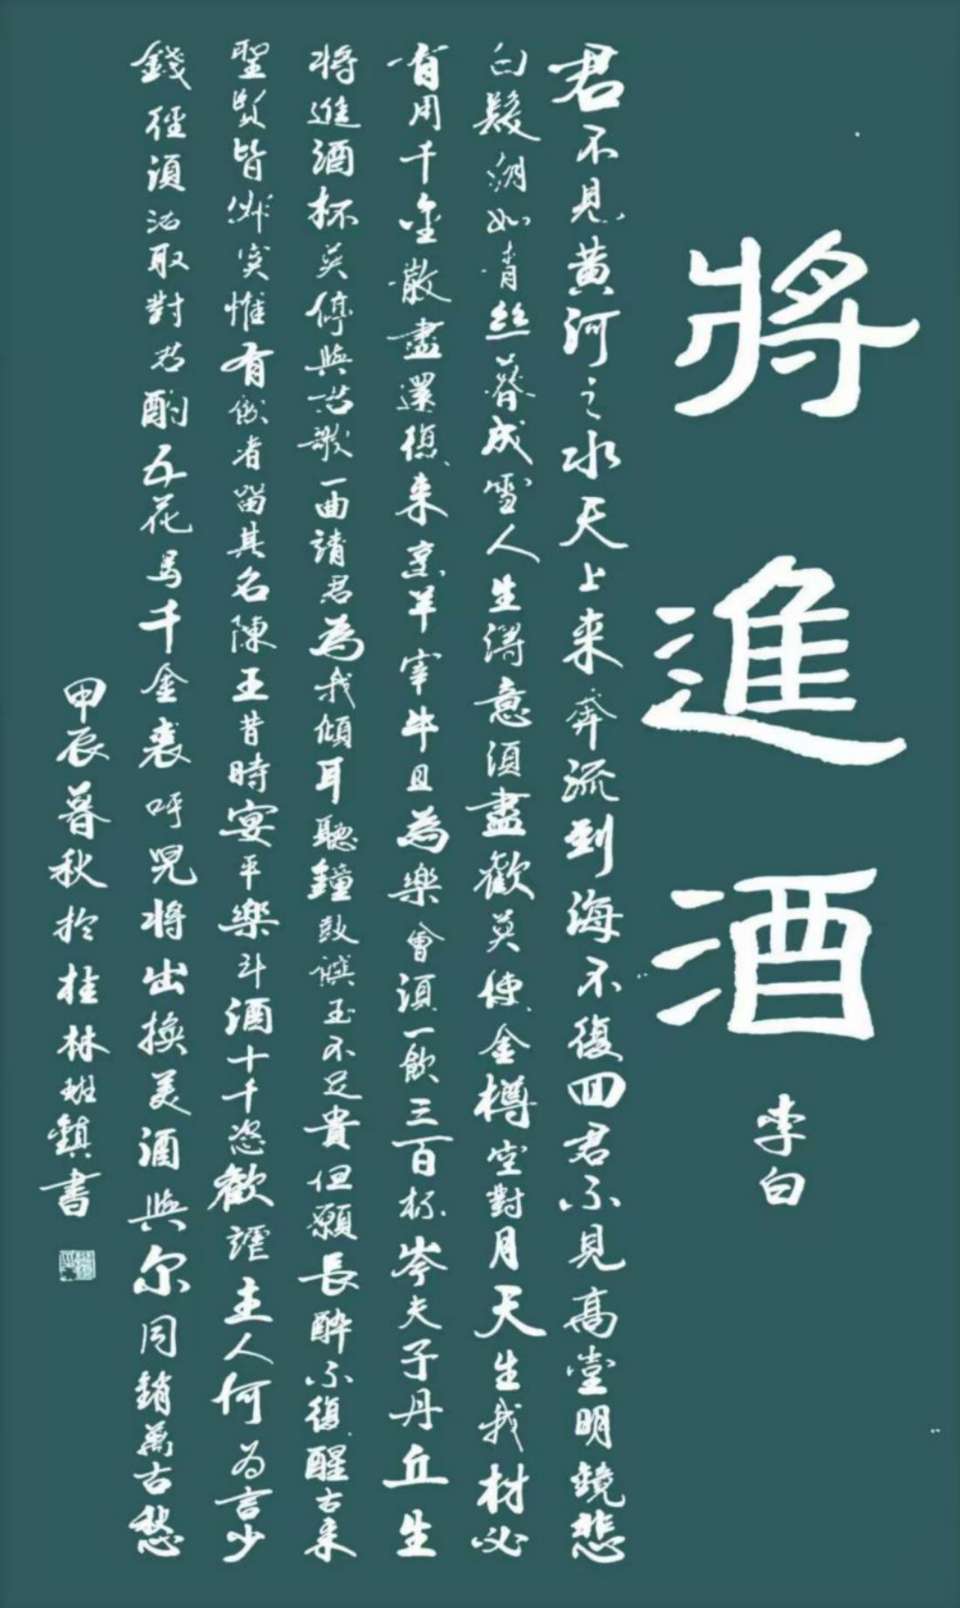 將進酒
李白
君不見黄河之水天上来奔流到海不復回君不見高堂明鏡悲
白髮朝如青絲暮成雪人生得意須盡歡莫使金樽空對月天生我材必
有用千金散盡還復来烹羊宰牛且為樂會須一飲三百杯岑夫子丹丘生
將進酒杯莫停與君歌一曲請君為我傾耳聽鐘鼓饌玉不足貴但願長醉不復醒古来
聖賢皆寂寞惟有飲者留其名陳王昔時宴平樂斗酒十千恣歡謔主人何為言少
錢徑須沽取對君酌五花馬千金裘呼兒將出換美酒與尔同銷萬古愁
甲辰暮秋於桂林班鎮書